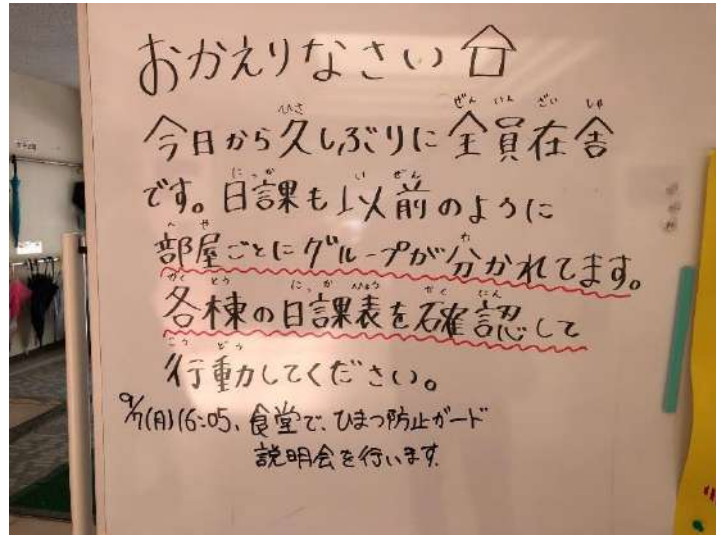 おかえりなさい
今日から久しぶりに全員在舎
です。日課も以前のように
部屋ごとにグループが分かれてます。
各棟の日課表を確認して
行動してください。
9/7(月)16:05、食堂で、ひまつ防止ガード
説明会を行います。